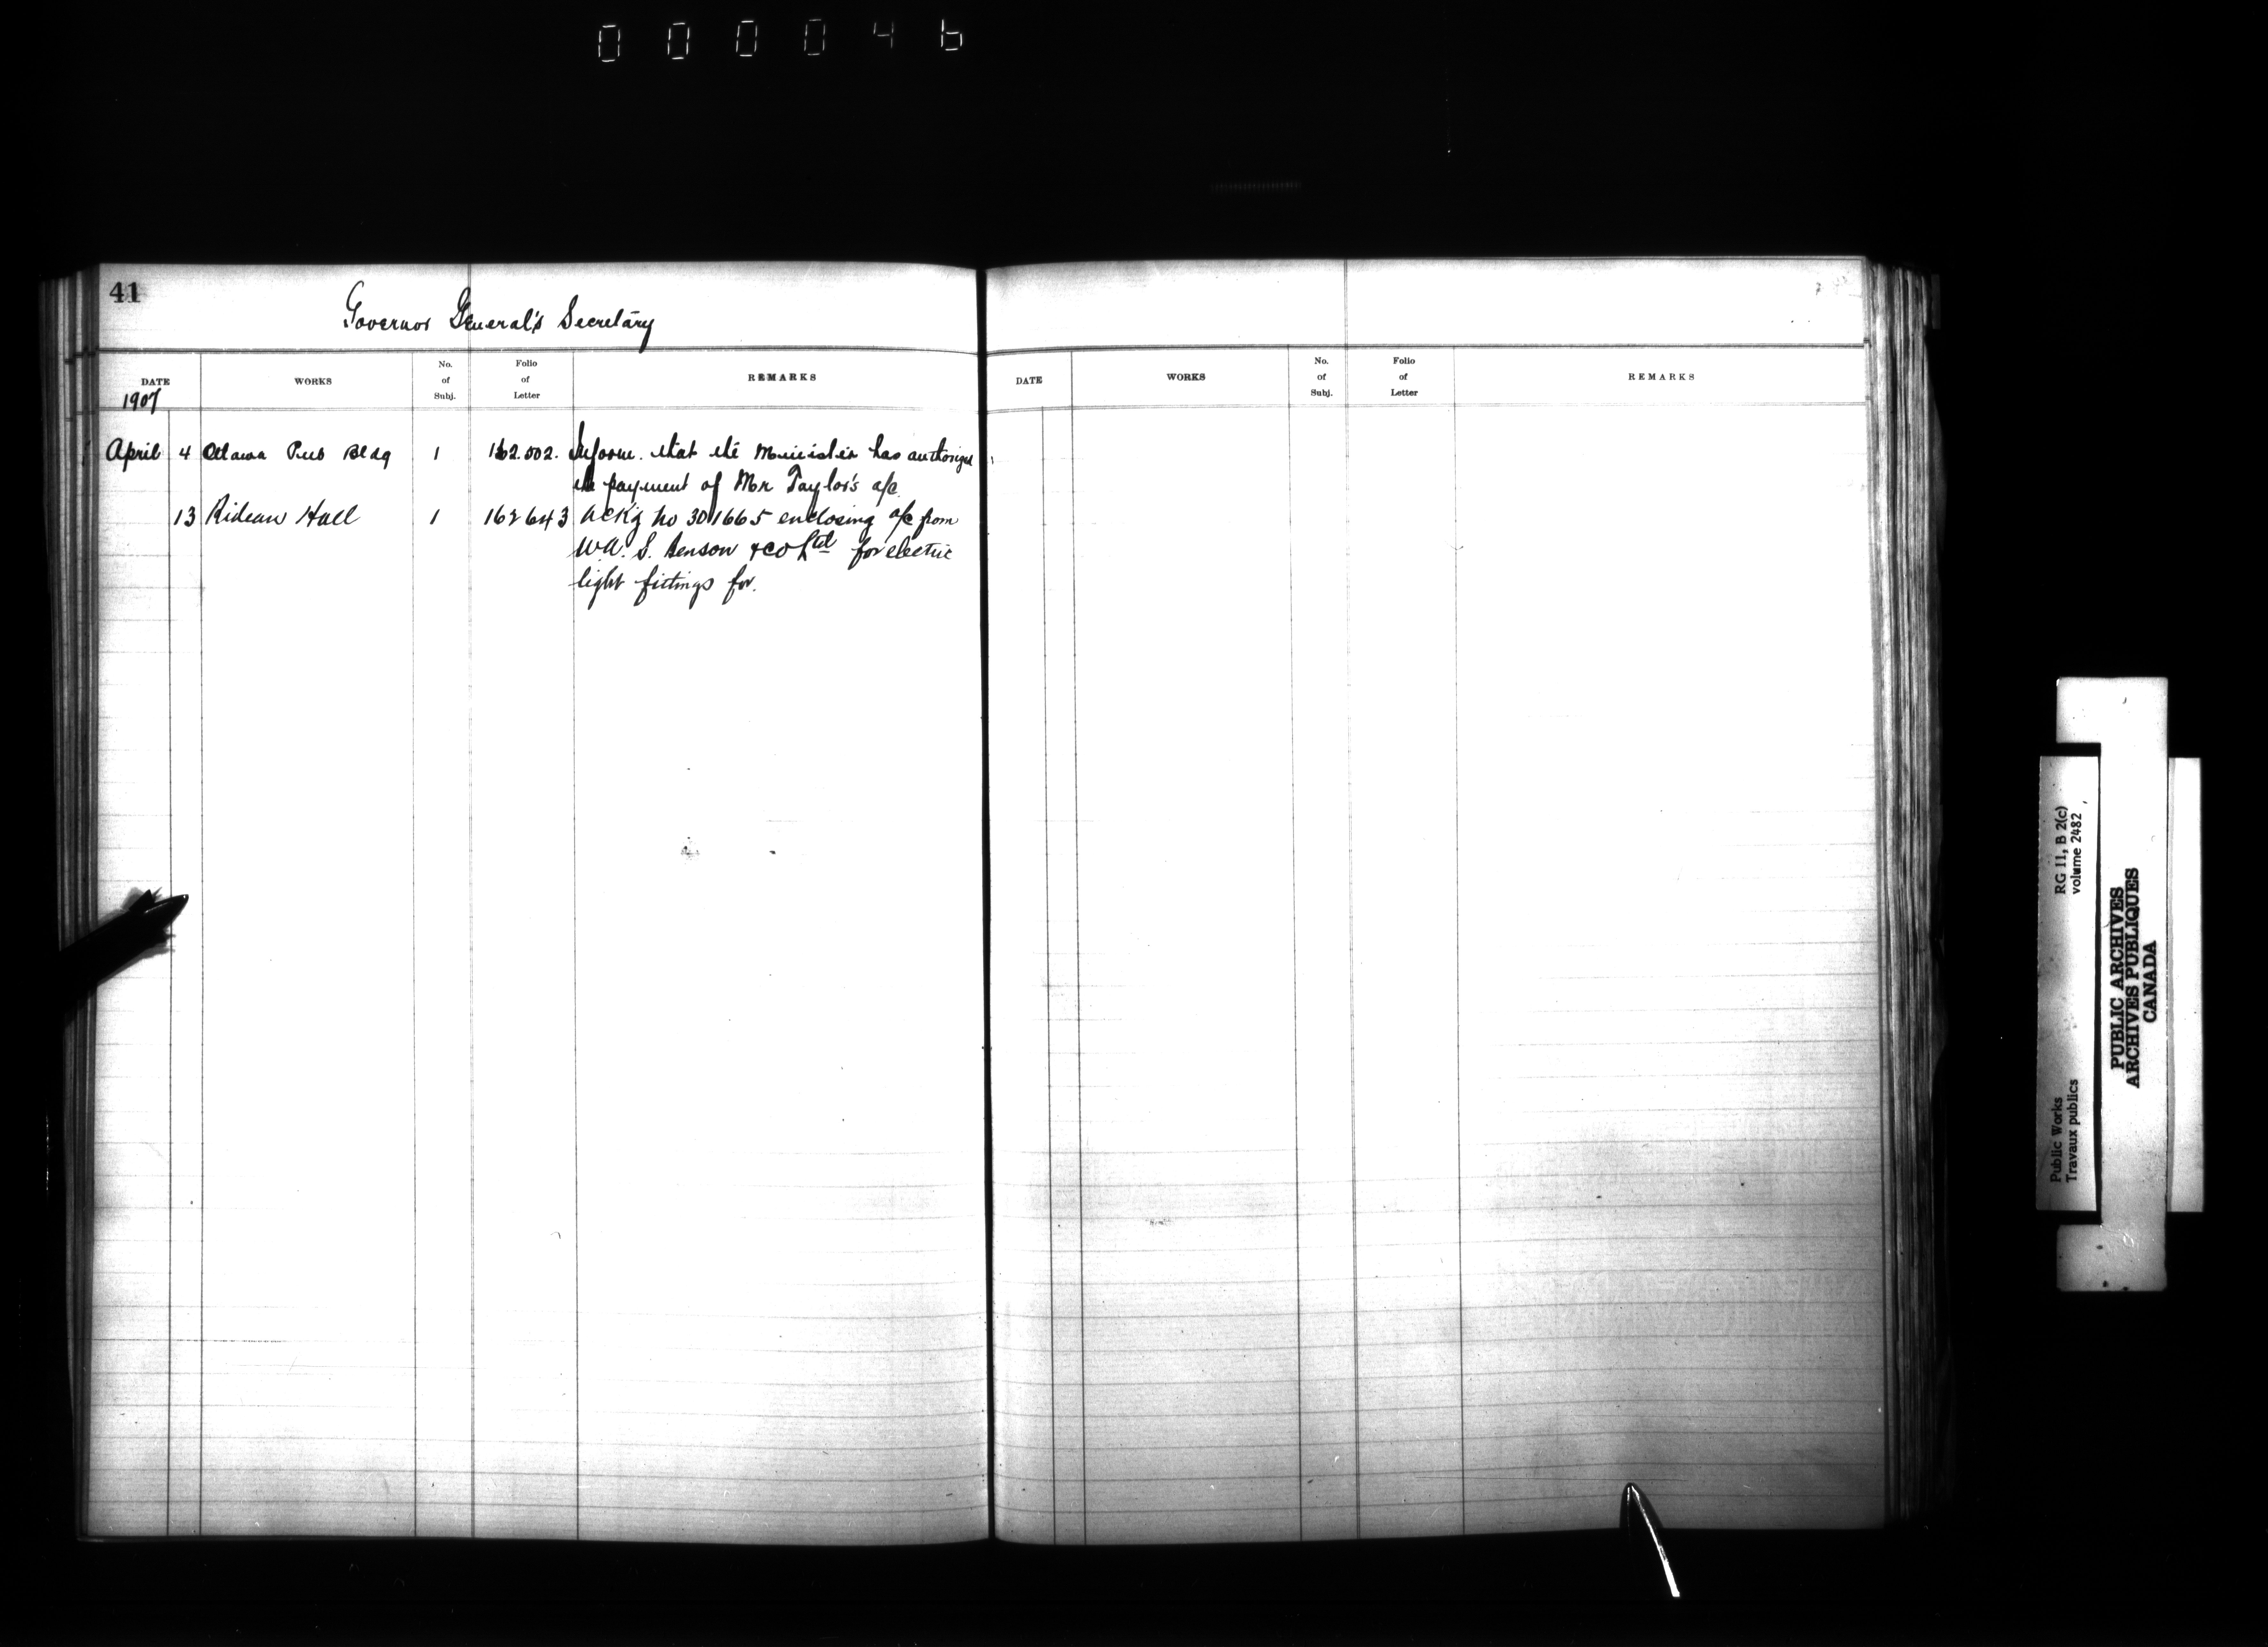 000046
41
Governor General's Secretary
DATE WORKS No. of Subj. Folio of Letter REMARKS
1907
April 4 Ottawa Pub Bldg 1 162.002. Inform. that the Minister has authorized
the payment of Mr Taylor's a/c
13 Rideau Hall 1 162643 Ack'g no 301665 enclosing a/c from
W.A. S. Benson & Co Ltd for electric
light fittings for.
DATE WORKS No. of Subj. Folio of Letter REMARKS
Public Works RG 11, B 2(c)
Travaux publics volume 2482
PUBLIC ARCHIVES
ARCHIVES PUBLIQUES
CANADA